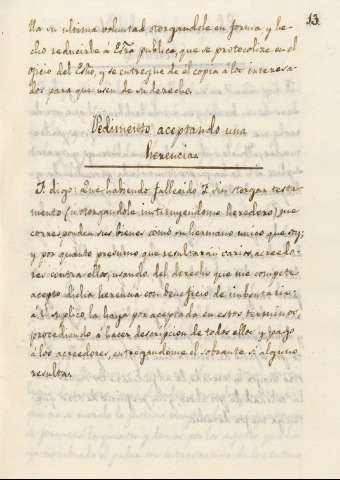 13.
Ha su ultima voluntad, otorgandole en forma y he-
cho reducirle á Esra publica, que se protocolize en el
oficio del Esno, y se entregue de él copia á los interesa-
dos para que usen de su derecho.
Pedimento aceptando una
herencia.
F. digo: Que habiendo fallecido F. sin otorgar testa-
mento (u otorgandole instituyendome heredero) me
corresponden sus bienes como su hermano unico que soy;
y por quanto presumo que resultarán varios acreedo-
res contra ellos, usando del derecho que me compete,
acepto dicha herencia con beneficio de imbentario:
á V. suplico, la haya por aceptada en estos terminos,
procediendo á hacer descripcion de todos ellos y pago
á los acreedores, entregandome el sobrante si alguno
resulta.